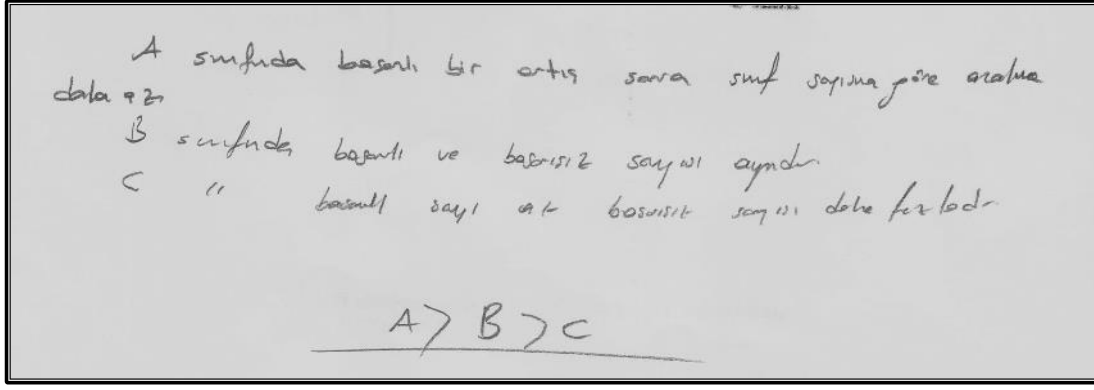 A sınfında başarılı bir artış sonra sınıf sayısına göre azalma
daha az
B sınfında başarılı ve başarısız sayısı aynıdır.
C " başarılı sayı az başarısız sayısı daha fazladır
A > B > C